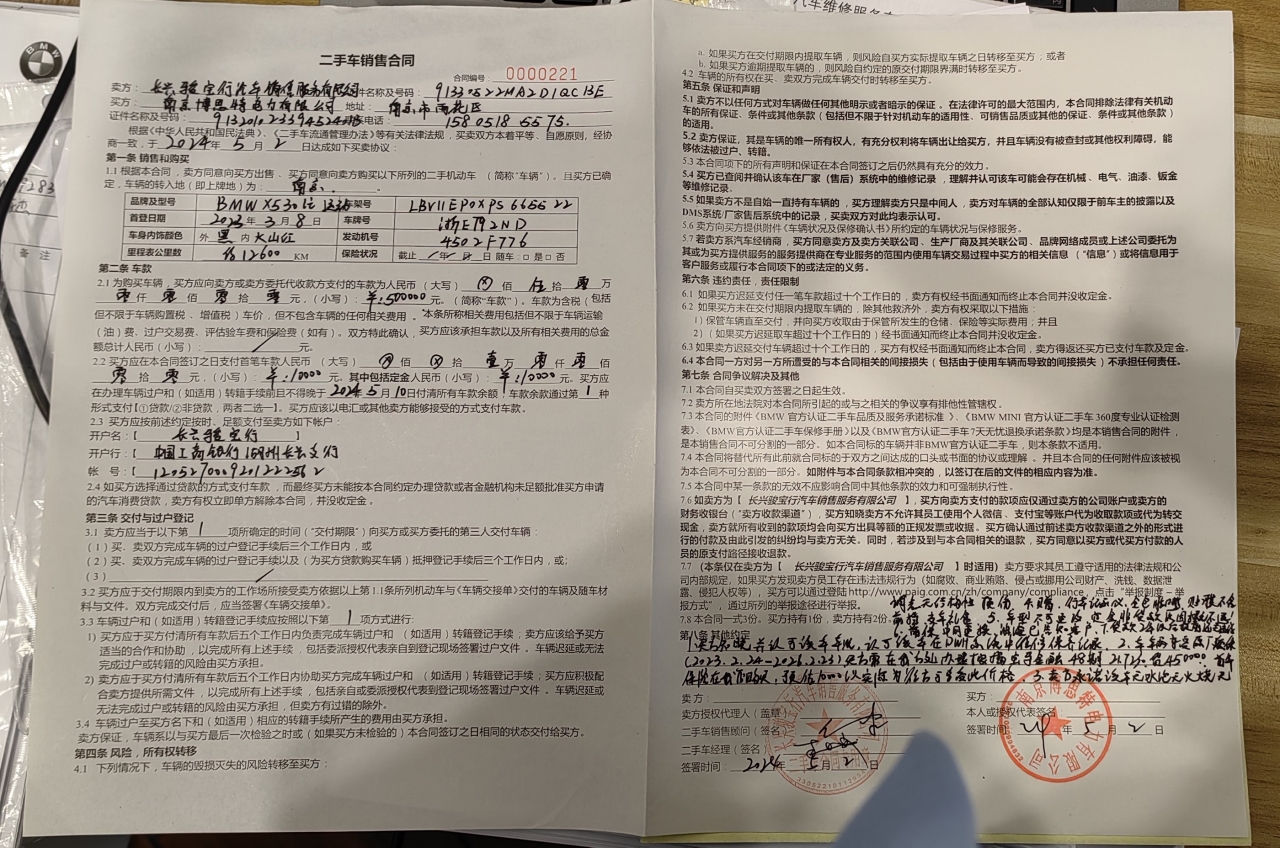 汽车维修服务
BMW
二手车销售合同
合同编号: 0000221
卖方: 长兴骏宝行汽车销售服务有限公司 证件名称及号码: 91330522MA2D1QC13E
买方: 南京博思特电力有限公司 地址: 南京市雨花区
证件名称及号码: 电话: 158 0518 5575.
根据《中华人民共和国民法典》、《二手车流通管理办法》等有关法律法规,买卖双方本着平等、自愿原则,经协
商一致,于 2024年 5 月 2 日达成如下买卖协议:
第一条 销售和购买
1.1 根据本合同,卖方同意向买方出售、买方同意向卖方购买以下所列的二手机动车 (简称"车辆")。且买方已确
定,车辆的转入地(即上牌地)为: 南京.
品牌及型号 BMW X530 车架号 LBV11EP0XPS 665522
首登日期 2023 年 3 月 8 日 车牌号 浙E792ND
车身内饰颜色 外 黑 内 火山红 发动机号 4502F776
里程表公里数 12600 KM 保险状况 截止 / 年 / 月 日 随车:□是□否
第二条 车款
2.1 为购买车辆,买方应向卖方或卖方委托收款方支付的车款为人民币 (大写) ⊗ 佰 伍 拾 零 万
零 仟 零 佰 零 拾 零 元,(小写): ¥:500000 元,(简称"车款")。车款为含税(包括
但不限于车辆购置税、增值税)车价,但不包含车辆的任何相关费用。本条所称相关费用包括但不限于车辆运输
(油)费、过户交易费、评估验车费和保险费(如有)。双方特此确认,买方应该承担车款以及所有相关费用的总金
额总计人民币(小写): / 元。
2.2 买方应在本合同签订之日支付首笔车款人民币 (大写) ⊗ 佰 ⊗ 拾 壹 万 零 仟 零 佰
零 拾 零 元,(小写): ¥:10000 元,其中包括定金人民币(小写): ¥:10000 元。买方应
在办理车辆过户和(如适用)转籍手续前且不得晚于 2024年 5 月 10 日付清所有车款余额,车款余款通过第 1 种
形式支付【①贷款/②非贷款,两者二选一】。买方应该以电汇或其他卖方能够接受的方式支付车款。
2.3 买方应按前述约定按时、足额支付至卖方如下帐户:
开户名:【 长兴骏宝行 】
开户行:【 中国工商银行湖州长兴支行 】
帐 号:【 1205270009201222562 】
2.4 如买方选择通过贷款的方式支付车款,而最终买方未能按本合同约定办理贷款或者金融机构未足额批准买方申请
的汽车消费贷款,卖方有权立即单方解除本合同,并没收定金。
第三条 交付与过户登记
3.1 卖方应当于以下第 1 项所确定的时间("交付期限")向买方或买方委托的第三人交付车辆:
(1)买、卖双方完成车辆的过户登记手续后三个工作日内,或
(2)买、卖双方完成车辆的过户登记手续以及(为买方贷款购买车辆)抵押登记手续后三个工作日内,或;
(3) /
3.2 买方应于交付期限内到卖方的工作场所接受卖方依据以上第1.1条所列机动车与《车辆交接单》交付的车辆及随车材
料与文件。双方完成交付后,应当签署《车辆交接单》。
3.3 车辆过户和(如适用)转籍登记手续应按照以下第 1 项方式进行:
1)买方应于买方付清所有车款后五个工作日内负责完成车辆过户和 (如适用)转籍登记手续;卖方应该给予买方
适当的合作和协助,以完成所有上述手续,包括委派授权代表亲自到登记现场签署过户文件。车辆迟延或无
法完成过户或转籍的风险由买方承担。
2)卖方应于买方付清所有车款后五个工作日内协助买方完成车辆过户和 (如适用)转籍登记手续;买方应积极配
合卖方提供所需文件,以完成所有上述手续,包括亲自或委派授权代表到登记现场签署过户文件。车辆迟延或
无法完成过户或转籍的风险由买方承担,但卖方有过错的除外。
3.4 车辆过户至买方名下和(如适用)相应的转籍手续所产生的费用由买方承担。
卖方保证,车辆系以与买方最后一次检验之时或(如果买方未检验的)本合同签订之日相同的状态交付给买方。
第四条 风险,所有权转移
4.1 下列情况下,车辆的毁损灭失的风险转移至买方:
a. 如果买方在交付期限内提取车辆,则风险自买方实际提取车辆之日转移至买方;或者
b. 如果买方逾期提取车辆的,则风险自约定的原交付期限界满时转移至买方。
4.2 车辆的所有权在买、卖双方完成车辆交付时转移至买方。
第五条 保证和声明
5.1 卖方不以任何方式对车辆做任何其他明示或者暗示的保证。在法律许可的最大范围内,本合同排除法律有关机动
车的所有保证、条件或其他条款(包括但不限于针对机动车的适用性、可销售品质或其他的保证、条件或其他条款)
的适用。
5.2 卖方保证,其是车辆的唯一所有权人,有充分权利将车辆出让给买方,并且车辆没有被查封或其他权利障碍,能
够依法被过户、转籍。
5.3 本合同项下的所有声明和保证在本合同签订之后仍然具有充分的效力。
5.4 买方已查阅并确认该车在厂家(售后)系统中的维修记录,理解并认可该车可能会存在机械、电气、油漆、钣金
等维修记录。
5.5 如果卖方不是自始一直持有车辆的,买方理解卖方只是中间人,卖方对车辆的全部认知仅限于前车主的披露以及
DMS系统/厂家售后系统中的记录,买卖双方对此均表示认可。
5.6 卖方向买方提供附件《车辆状况及保修确认书》所约定的车辆状况与保修服务。
5.7 若卖方系汽车经销商,买方同意卖方及卖方关联公司、生产厂商及其关联公司、品牌网络成员或上述公司委托为
其或为买方提供服务的服务提供商在专业服务的范围内使用车辆交易过程中买方的相关信息("信息")或将信息用于
客户服务或履行本合同项下的或法定的义务。
第六条 违约责任,责任限制
6.1 如果买方迟延支付任一笔车款超过十个工作日的,卖方有权经书面通知而终止本合同并没收定金。
6.2 如果买方未在交付期限内提取车辆的,除其他救济外,卖方有权采取以下措施:
1)保管车辆直至交付,并向买方收取由于保管所发生的仓储、保险等实际费用;并且
2)(如果买方迟延取车超过十个工作日的)经书面通知而终止本合同并没收定金。
6.3 如果卖方迟延交付车辆超过十个工作日的,买方有权经书面通知而终止本合同,卖方得返还买方已支付车款及定金。
6.4 本合同一方对另一方所遭受的与本合同相关的间接损失(包括由于使用车辆而导致的间接损失)不承担任何责任。
第七条 合同争议解决及其他
7.1 本合同自买卖双方签署之日起生效。
7.2 卖方所在地法院对本合同所引起的或与之相关的争议享有排他性管辖权。
7.3 本合同的附件《BMW 官方认证二手车品质及服务承诺标准》、《BMW MINI 官方认证二手车 360度专业认证检测
表》、《BMW官方认证二手车保修手册》以及《BMW官方认证二手车7天无忧退换承诺条款》均是本销售合同的附件,
是本销售合同不可分割的一部分。如本合同标的车辆并非BMW官方认证二手车,则本条款不适用。
7.4 本合同将替代所有此前就合同标的于双方之间达成的口头或书面的协议或理解,并且本合同的任何附件应该被视
为本合同不可分割的一部分。如附件与本合同条款相冲突的,以签订在后的文件的相应内容为准。
7.5 本合同中某一条款的无效不应影响合同中其他条款的效力和可强制执行性。
7.6 如卖方为【 长兴骏宝行汽车销售服务有限公司 】,买方向卖方支付的款项应仅通过卖方的公司账户或卖方的
财务收银台("卖方收款渠道"),买方知晓卖方不允许其员工使用个人微信、支付宝等账户代为收取款项或代为转交
现金,卖方就所有收到的款项均会向买方出具等额的正规发票或收据。买方确认通过前述卖方收款渠道之外的形式进
行的付款及由此引发的纠纷均与卖方无关。同时,若涉及到与本合同相关的退款,买方同意以买方或代买方付款的人员
的原支付路径接收退款。
7.7 (本条仅在卖方为【 长兴骏宝行汽车销售服务有限公司 】时适用)卖方要求其员工遵守适用的法律法规和公
司内部规定,如果买方发现卖方员工存在违法违规行为(如腐败、商业贿赂、侵占或挪用公司财产、洗钱、数据泄
露、侵犯人权等),买方可以通过登陆http://www.paig.com.cn/zh/company/compliance,点击"举报制度-举
报方式",通过所列的举报途径进行举报。
7.8 本合同一式3份。买方持有1份,卖方
第八条 其他约定
卖方: 买方:
卖方授权代理人(盖章) 本人或授权代表签名
二手车销售顾问(签名) 签署时间: 24 年 5 月 2 日
二手车经理(签名)
签署时间: 2024年 5 月 2 日
南京博思特电力有限公司